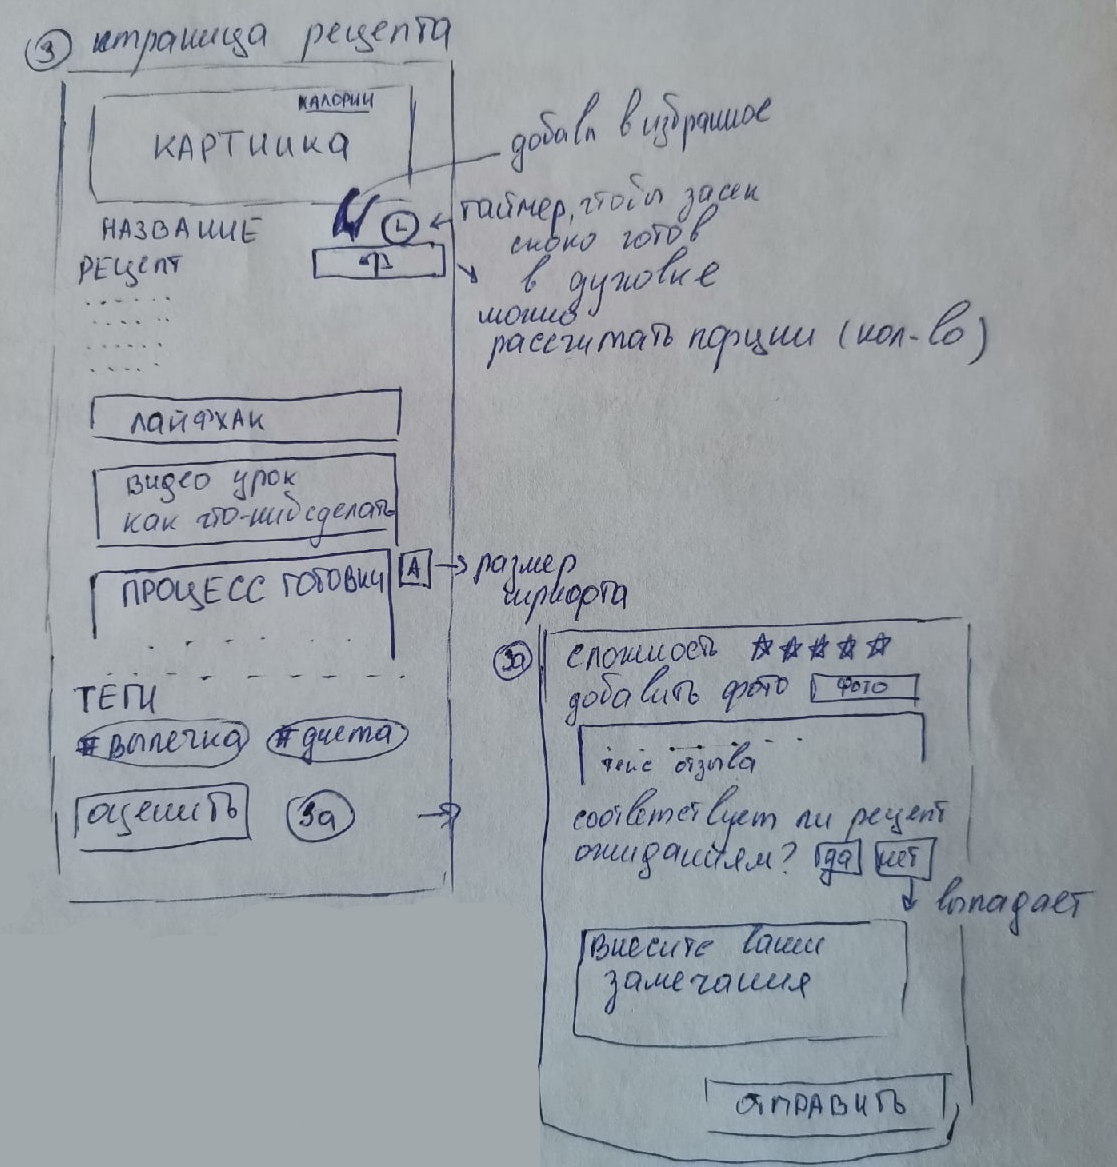 3 страница рецепта
КАЛОРИИ
КАРТИНКА
добавл в избранное
НАЗВАНИЕ
таймер, чтобы засек
скоко готов
в духовке
РЕЦЕПТ
можно
рассчитать порции (кол-во)
ЛАЙФХАК
ВИДЕО УРОК
КАК ЧТО-НИБ СДЕЛАТЬ
ПРОЦЕСС ГОТОВКИ
А
размер
шрифта
ТЕГИ
#выпечка #диета
оценить 3а
3а
сложность ☆☆☆☆☆
добавить фото ФОТО
текс отзыва
соответствует ли рецепт
ожиданиям? да нет
выпадает
Внесите ваши
замечания
ОТПРАВИТЬ